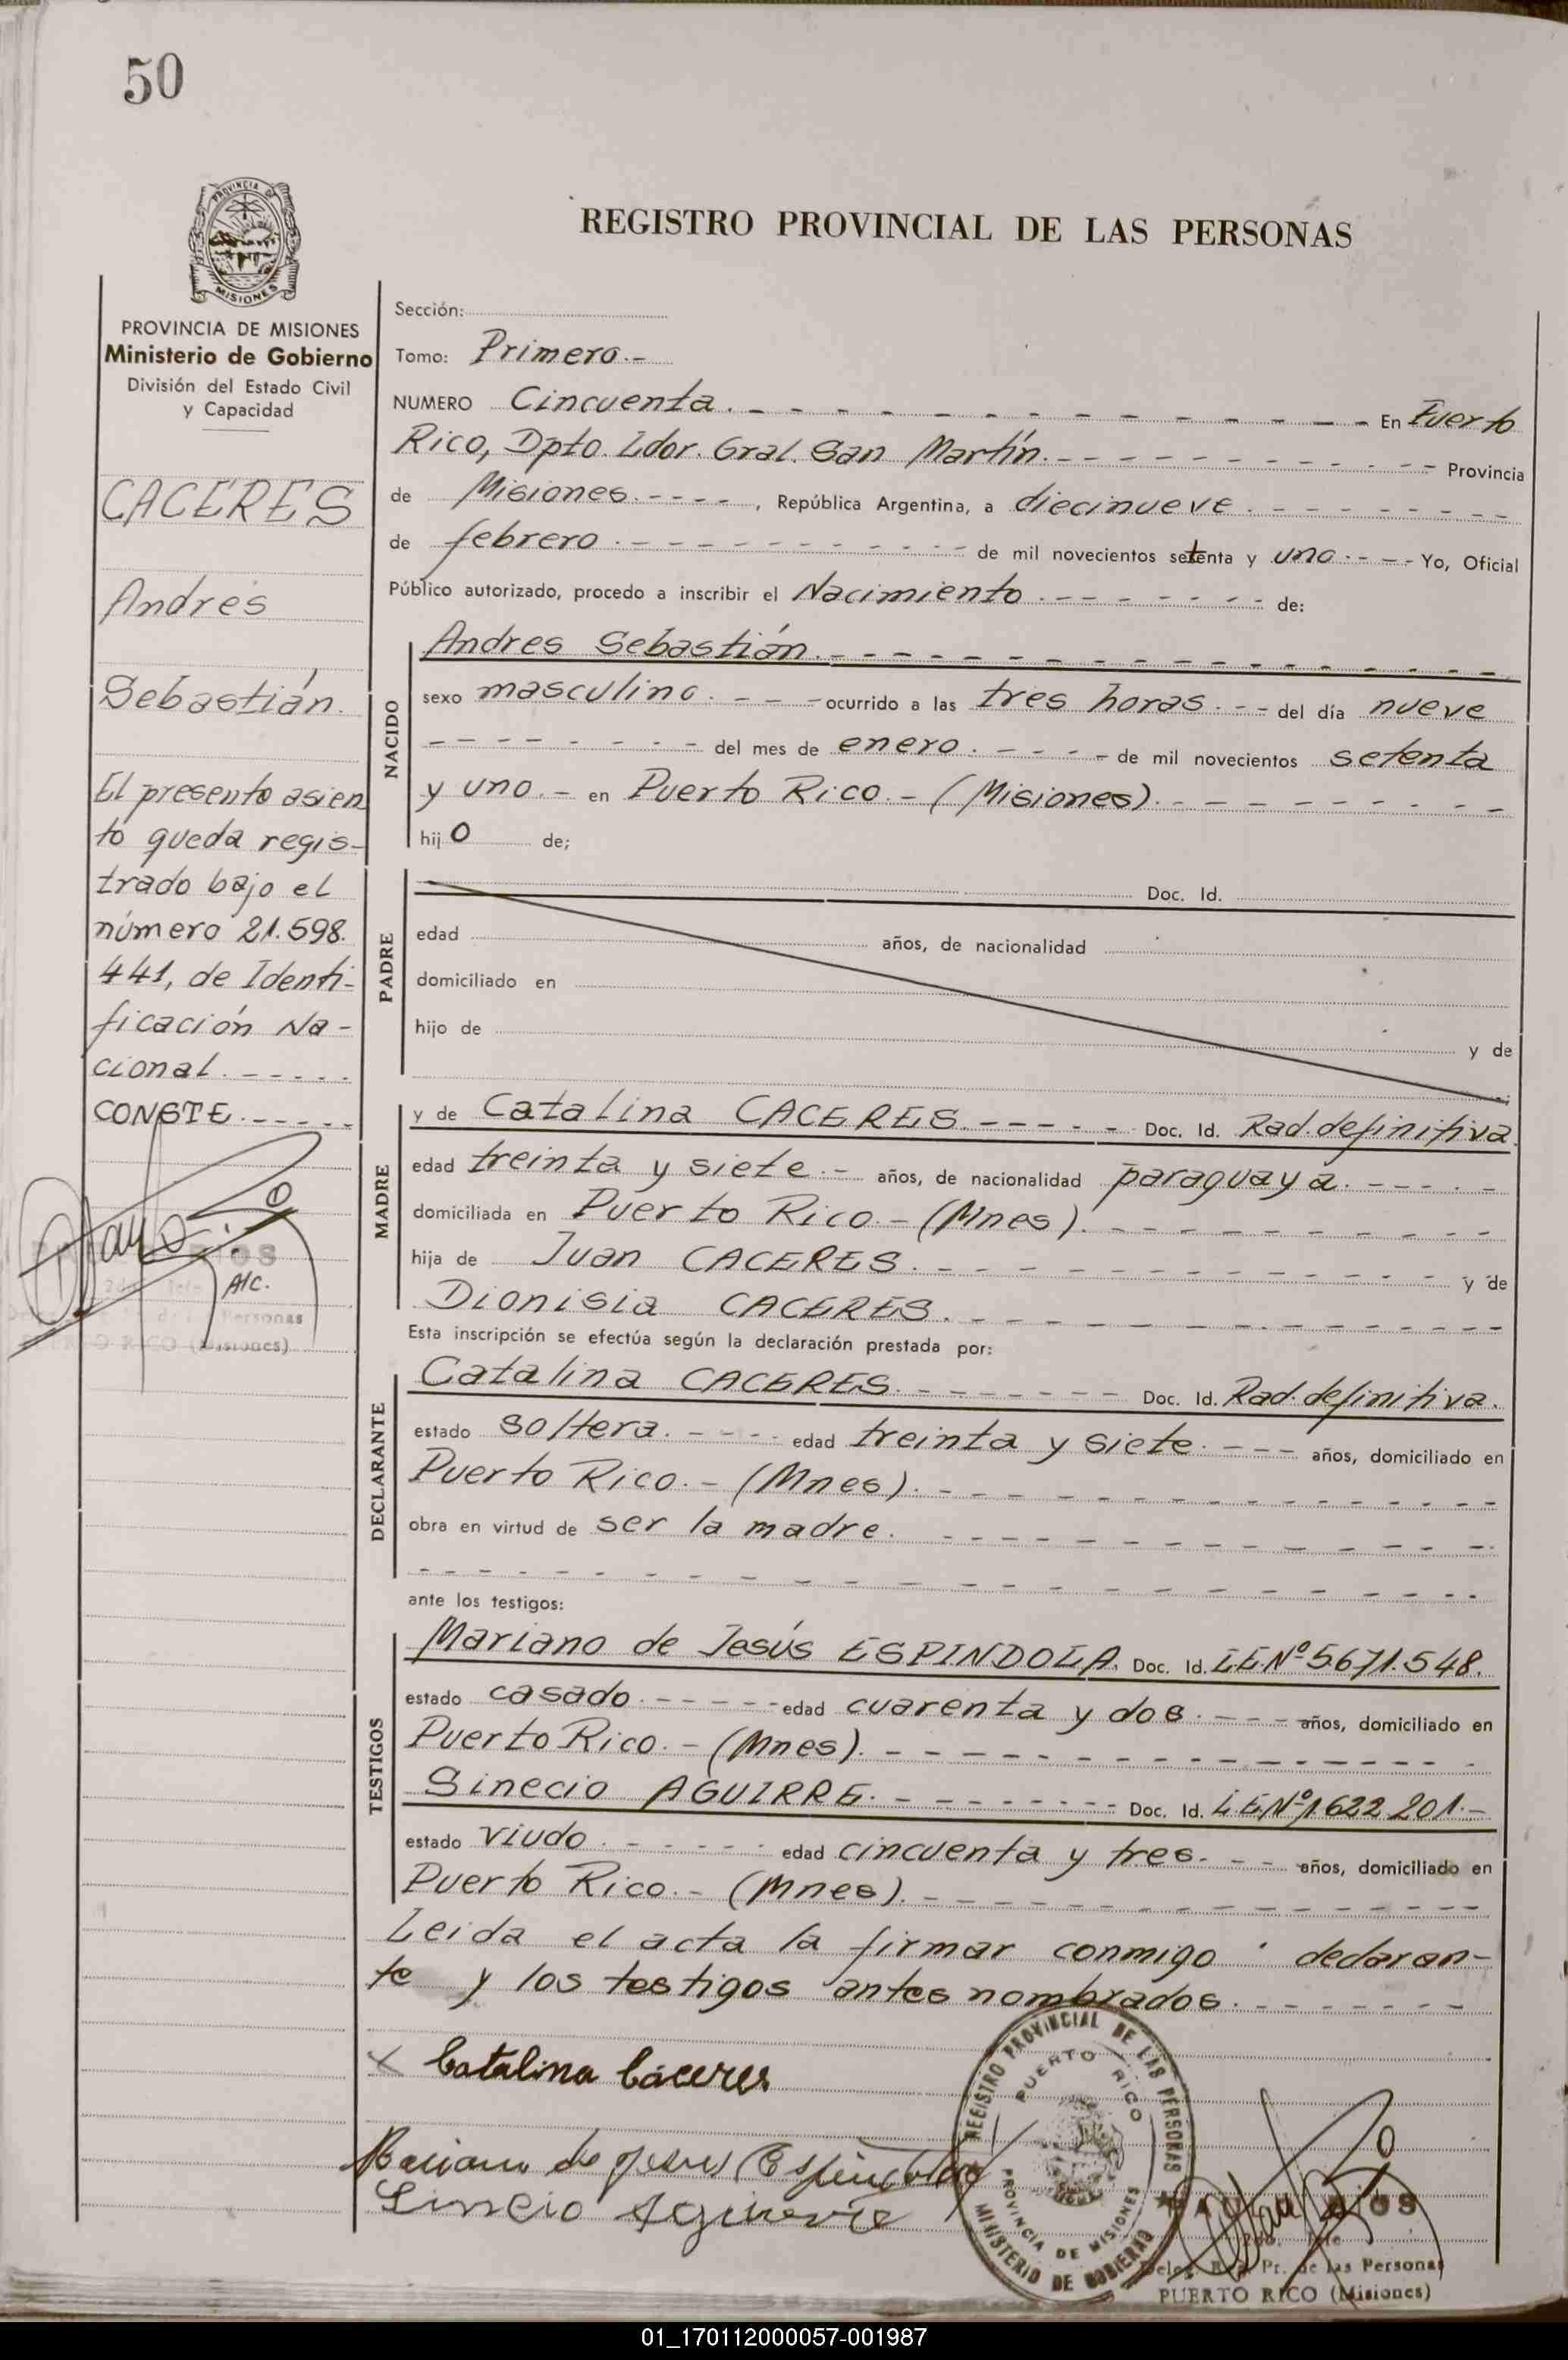 50
PROVINCIA DE
MISIONES
PROVINCIA DE MISIONES
Ministerio de Gobierno
División del Estado Civil
y Capacidad
CACERES
Andres
Sebastián.
El presente asien
to queda regis-
trado bajo el
número 21.598.
441, de Identi-
ficación Na-
cional.-----
CONSTE.-----
A/C.
Personas
RICO (Misiones)
REGISTRO PROVINCIAL DE LAS PERSONAS
Sección:
Tomo: Primero.-
NUMERO Cincuenta. - - - - - - - - - - En Puerto
Rico, Dpto. Ldor. Gral. San Martín. - - - - - - - - - - Provincia
de Misiones. - - - -, República Argentina, a diecinueve. - - - - - - -
de febrero. - - - - - - - - - - de mil novecientos setenta y uno. - - - Yo, Oficial
Público autorizado, procedo a inscribir el Nacimiento. - - - - - - - de:
NACIDO
Andres Sebastián. - - - - - - - - - - - - - - - -
sexo masculino. - - - ocurrido a las tres horas. - - del día nueve
- - - - - - - - del mes de enero. - - - - de mil novecientos setenta
y uno. - en Puerto Rico. - (Misiones). - - - - - - - -
hijo de;
PADRE
Doc. Id.
edad años, de nacionalidad
domiciliado en
hijo de y de
MADRE
y de Catalina CACERES. - - - - - Doc. Id. Rad. definitiva.
edad treinta y siete. - años, de nacionalidad paraguaya. - - - - -
domiciliada en Puerto Rico. - (Mnes). - - - - - - - - - -
hija de Juan CACERES. - - - - - - - - - - - - - y de
Dionisia CACERES. - - - - - - - - - - - - - -
Esta inscripción se efectúa según la declaración prestada por:
DECLARANTE
Catalina CACERES. - - - - - - - Doc. Id. Rad. definitiva.
estado soltera. - - - - edad treinta y siete. - - - años, domiciliado en
Puerto Rico. - (Mnes). - - - - - - - - - - - - - -
obra en virtud de ser la madre. - - - - - - - - - - - -
- - - - - - - - - - - - - - - - - - - -
ante los testigos:
TESTIGOS
Mariano de Jesús ESPINDOLA. Doc. Id. L.E.Nº 5671.548.
estado casado. - - - - - edad cuarenta y dos. - - - años, domiciliado en
Puerto Rico. - (Mnes). - - - - - - - - - - - - - - -
Sinecio AGUIRRE. - - - - - - - - Doc. Id. L.E.Nº 1.622 201. -
estado viudo. - - - - - edad cincuenta y tres. - - - años, domiciliado en
Puerto Rico. - (Mnes). - - - - - - - - - - - - - -
Leida el acta la firmar conmigo declaran-
te y los testigos antes nombrados. - - - - - - -
x Catalina Cáceres
Mariano de Jesus Espindola
Sinecio Aguirre
REGISTRO PROVINCIAL DE LAS PERSONAS
PUERTO RICO
PROVINCIA DE MISIONES
MINISTERIO DE GOBIERNO
Deleg. Reg. Pr. de las Personas
PUERTO RICO (Misiones)
01_170112000057-001987